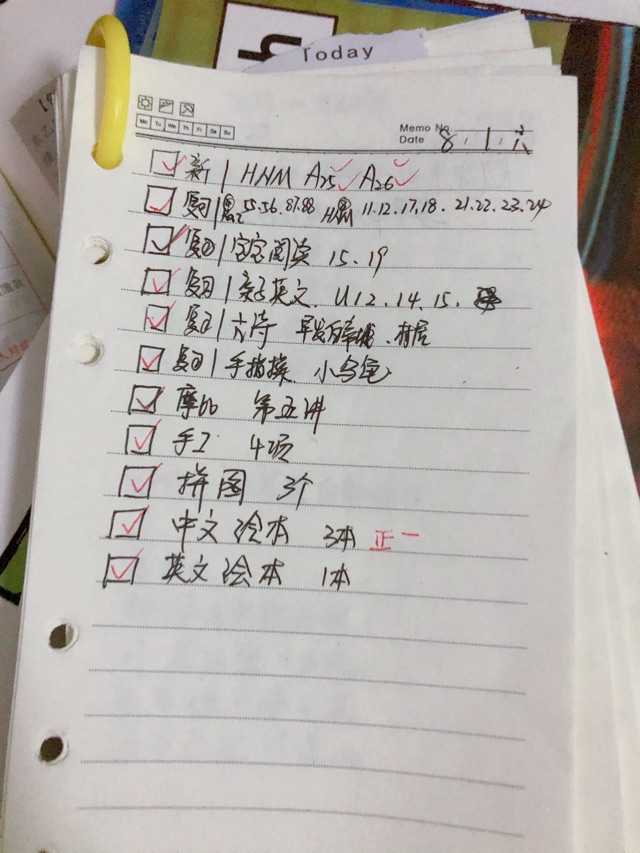 Today
Memo No.
Mo Tu We Th Fr Sa Su
Date 8.1.六
新 | HNM A25 A26
复习 | 55.56.87.88 11.12.17.18. 21.22.23.24
复习 | 字宝阅读 15.19
复习 | 亲子英文. U12.14.15.
复习 | 古诗 早发白帝城.
复习 | 手指操. 小乌龟
摩比 第五讲
手工 4项
拼图 3个
中文绘本 3本 正一
英文绘本 1本